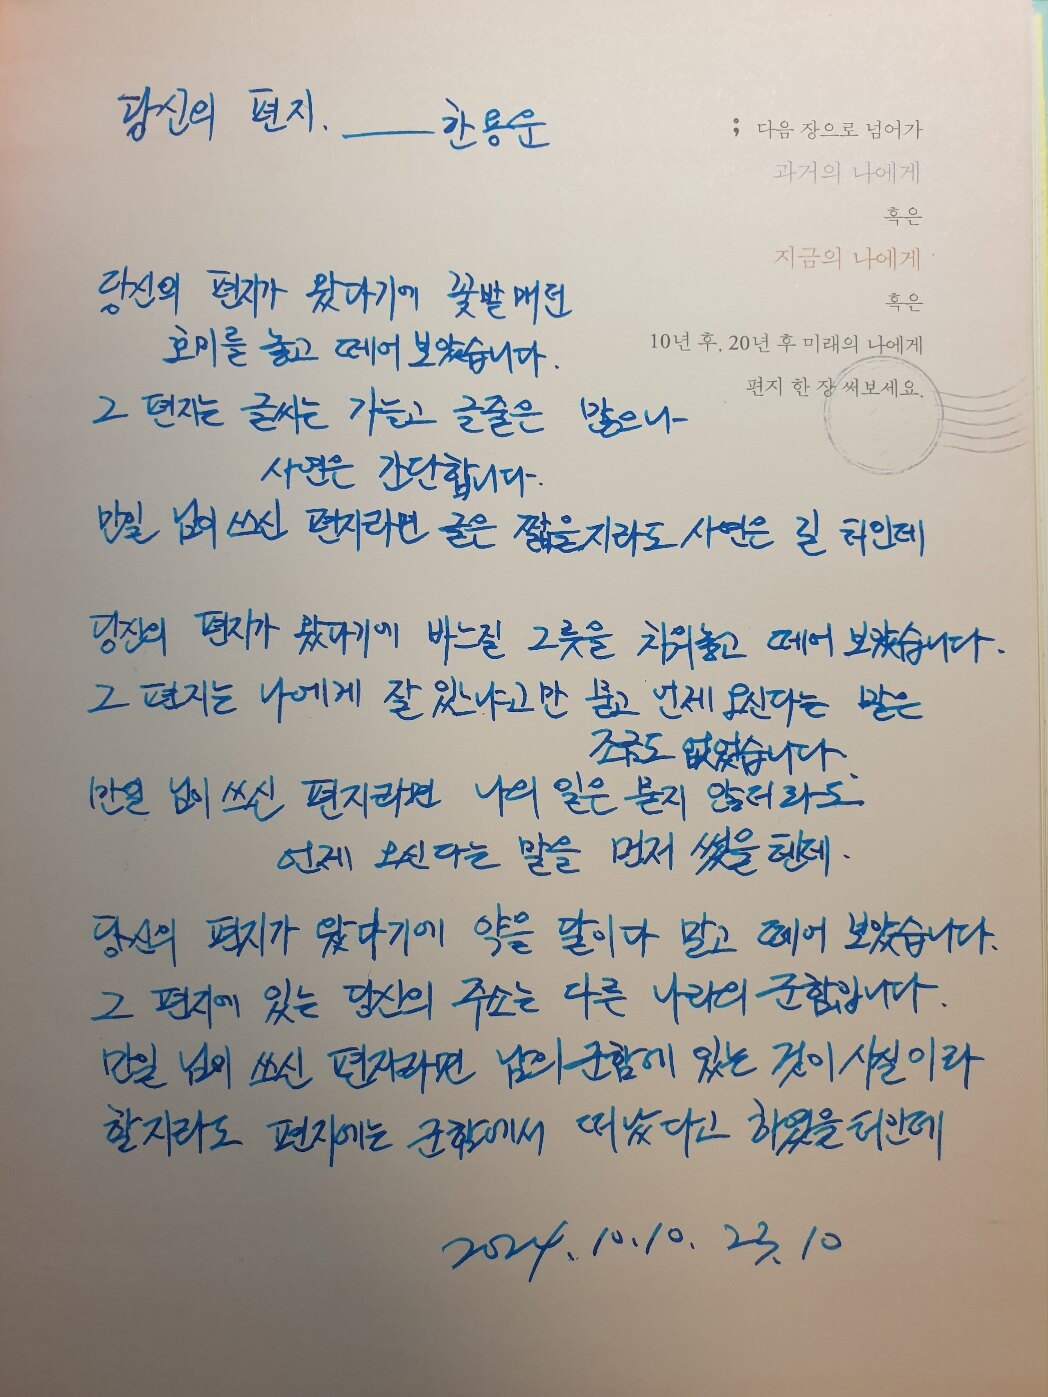 당신의 편지. ——— 한용운
; 다음 장으로 넘어가
과거의 나에게
혹은
지금의 나에게
혹은
10년 후, 20년 후 미래의 나에게
편지 한 장 써보세요.
당신의 편지가 왔다기에 꽃밭 매던
호미를 놓고 떼어 보았습니다.
그 편지는 글씨는 가늘고 글줄은 많으나
사연은 간단합니다.
만일 님이 쓰신 편지라면 글은 짧을지라도 사연은 길 터인데
당신의 편지가 왔다기에 바느질 그릇을 치워놓고 떼어 보았습니다.
그 편지는 나에게 잘 있느냐고만 묻고 언제 오신다는 말은
조금도 없었습니다.
만일 님이 쓰신 편지라면 나의 일은 묻지 않더라도
언제 오신다는 말을 먼저 썼을 텐데.
당신의 편지가 왔다기에 약을 달이다 말고 떼어 보았습니다.
그 편지에 있는 당신의 주소는 다른 나라의 군함입니다.
만일 님이 쓰신 편지라면 남의 군함에 있는 것이 사실이라
할지라도 편지에는 군함에서 떠났다고 하였을 터인데
2024. 10. 10. 23. 10